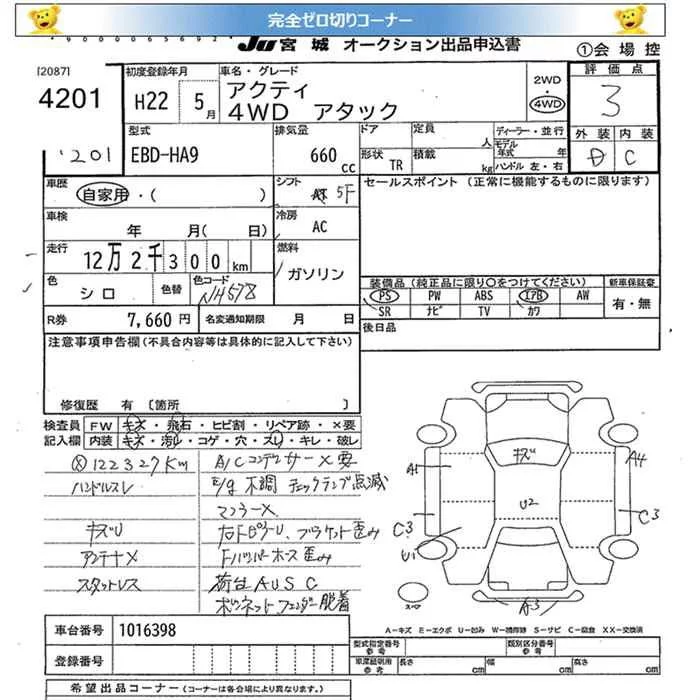 完全ゼロ切りコーナー
JU 宮城 オークション出品申込書
①会場控
[2087]
4201
初度登録年月
H22 5月
車名・グレード
アクティ
4WD アタック
2WD
4WD
評価点
3
型式
EBD-HA9
排気量
660 cc
ドア
定員 人
形状 TR
積載 kg
ディーラー・並行
モデル年式 年
ハンドル 左・右
外装 内装
D C
201
車歴
自家用・( )
シフト
5F
セールスポイント (正常に機能するものに限ります)
車検
年 月(日)
冷房
AC
走行
12万2千300km
燃料
ガソリン
色
シロ
色替
色コード
NH578
装備品(純正品に限り○をつけてください)
新車保証書
PS PW ABS エアB AW
有・無
SR ナビ TV カワ
R券
7,660円
名変通知期限 月 日
後日品
注意事項申告欄(不具合内容等は具体的に記入して下さい)
修復歴 有 〔箇所 〕
検査員記入欄
FW キズ・飛石・ヒビ割・リペア跡・×要
内装 キズ・汚れ・コゲ・穴・スレ・キレ・破レ
122327Km
A/Cコンデンサー×要
ハンドルスレ
E/g不調 チェックランプ点滅
マフラー×
キズU
右FピラーU、ブラケット歪み
アンテナ×
Fバンパーホース歪み
スタットレス
荷台AUSC
ボンネットフェンダー脱着
キズ
A1
A4
U2
C3
C3
U1
A3
スペアー
A-キズ E-エクボ U-凹み W-補修跡 S-サビ C-腐食 XX-交換済
車台番号
1016398
型式指定番号 参考
類別区分番号 参考
登録番号
車庫証明用 参考
長さ cm
幅 cm
高さ cm
希望出品コーナー(コーナーは各会場により異なります。)